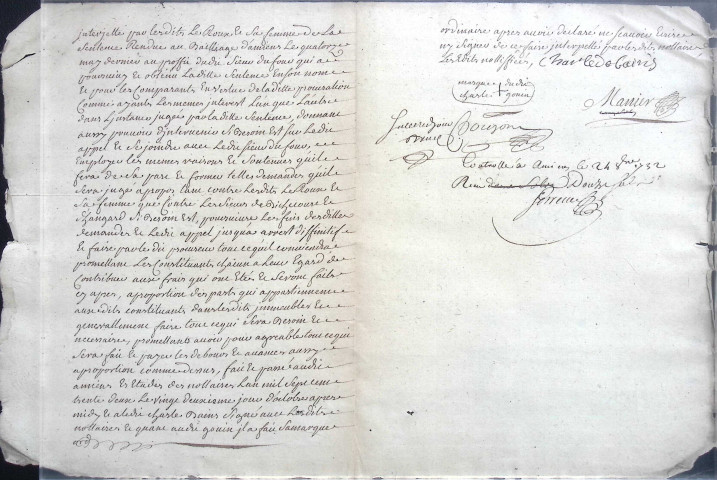 interjetté par lesdits Le Roux & sa femme de La
Sentence Rendue au Bailliage d'amiens Le quatorze
may dernier au proffit dudit Sieur du four qui a
poursuivy et obtenu Ladite Sentence en son nom &
& pour les Comparants En vertu de ladite procuration
Comme ayants Les memes interest L'un que L'autre
dans L'instance jugée par ladite Sentence, donnant
aussy pouvoir d'intervenir si Besoin Est sur Ledit
appel & se joindre avec Ledit Sieur du four, &
Employer les memes raisons & soutenies qu'il
fera de sa part & former telles demandes qu'il
Sera jugé apropos tant contre Lesdits Le Roux &
Sa femme que Contre Les Sieurs de &
Si Besoin Est, poursuivre Les fins desdites
demandes & Ledit appel jusqua arrest diffinitif &
& faire par ledit procureur tout ce qu'il conviendra
promettant Les Constituants chacun a Leur Egard de
Contribuer aux frais qui ont Etés & seront faits
cy apres, a proportion des parts qui appartiennent
ausdits constituants dans lesdits immeubles &
generallement faire tout ce qui sera Besoin &
necessaire, promettants avoir pour agreable tout ce qui
Sera fait & payer les debours & avances aussy
a proportion comme dessus, fait & passé audit
amiens Es Etudes des nottaires L'an mil Sept cent
trente deux Le vingt deuxieme jour d'octobre apres
midy & a ledit charle Signé avec Lesdits
nottaires & quant audit gouin il a fait sa marque
ordinaire apres avoir declaré ne scavoir Ecrire
ny signer de ce faire interpellé par lesdits nottaires
Les Edits nottiffiés, Charle de
marque dudit
charle gouin
Manier

Controllé a Amiens le 24 8bre 1732
Receu Douze sols